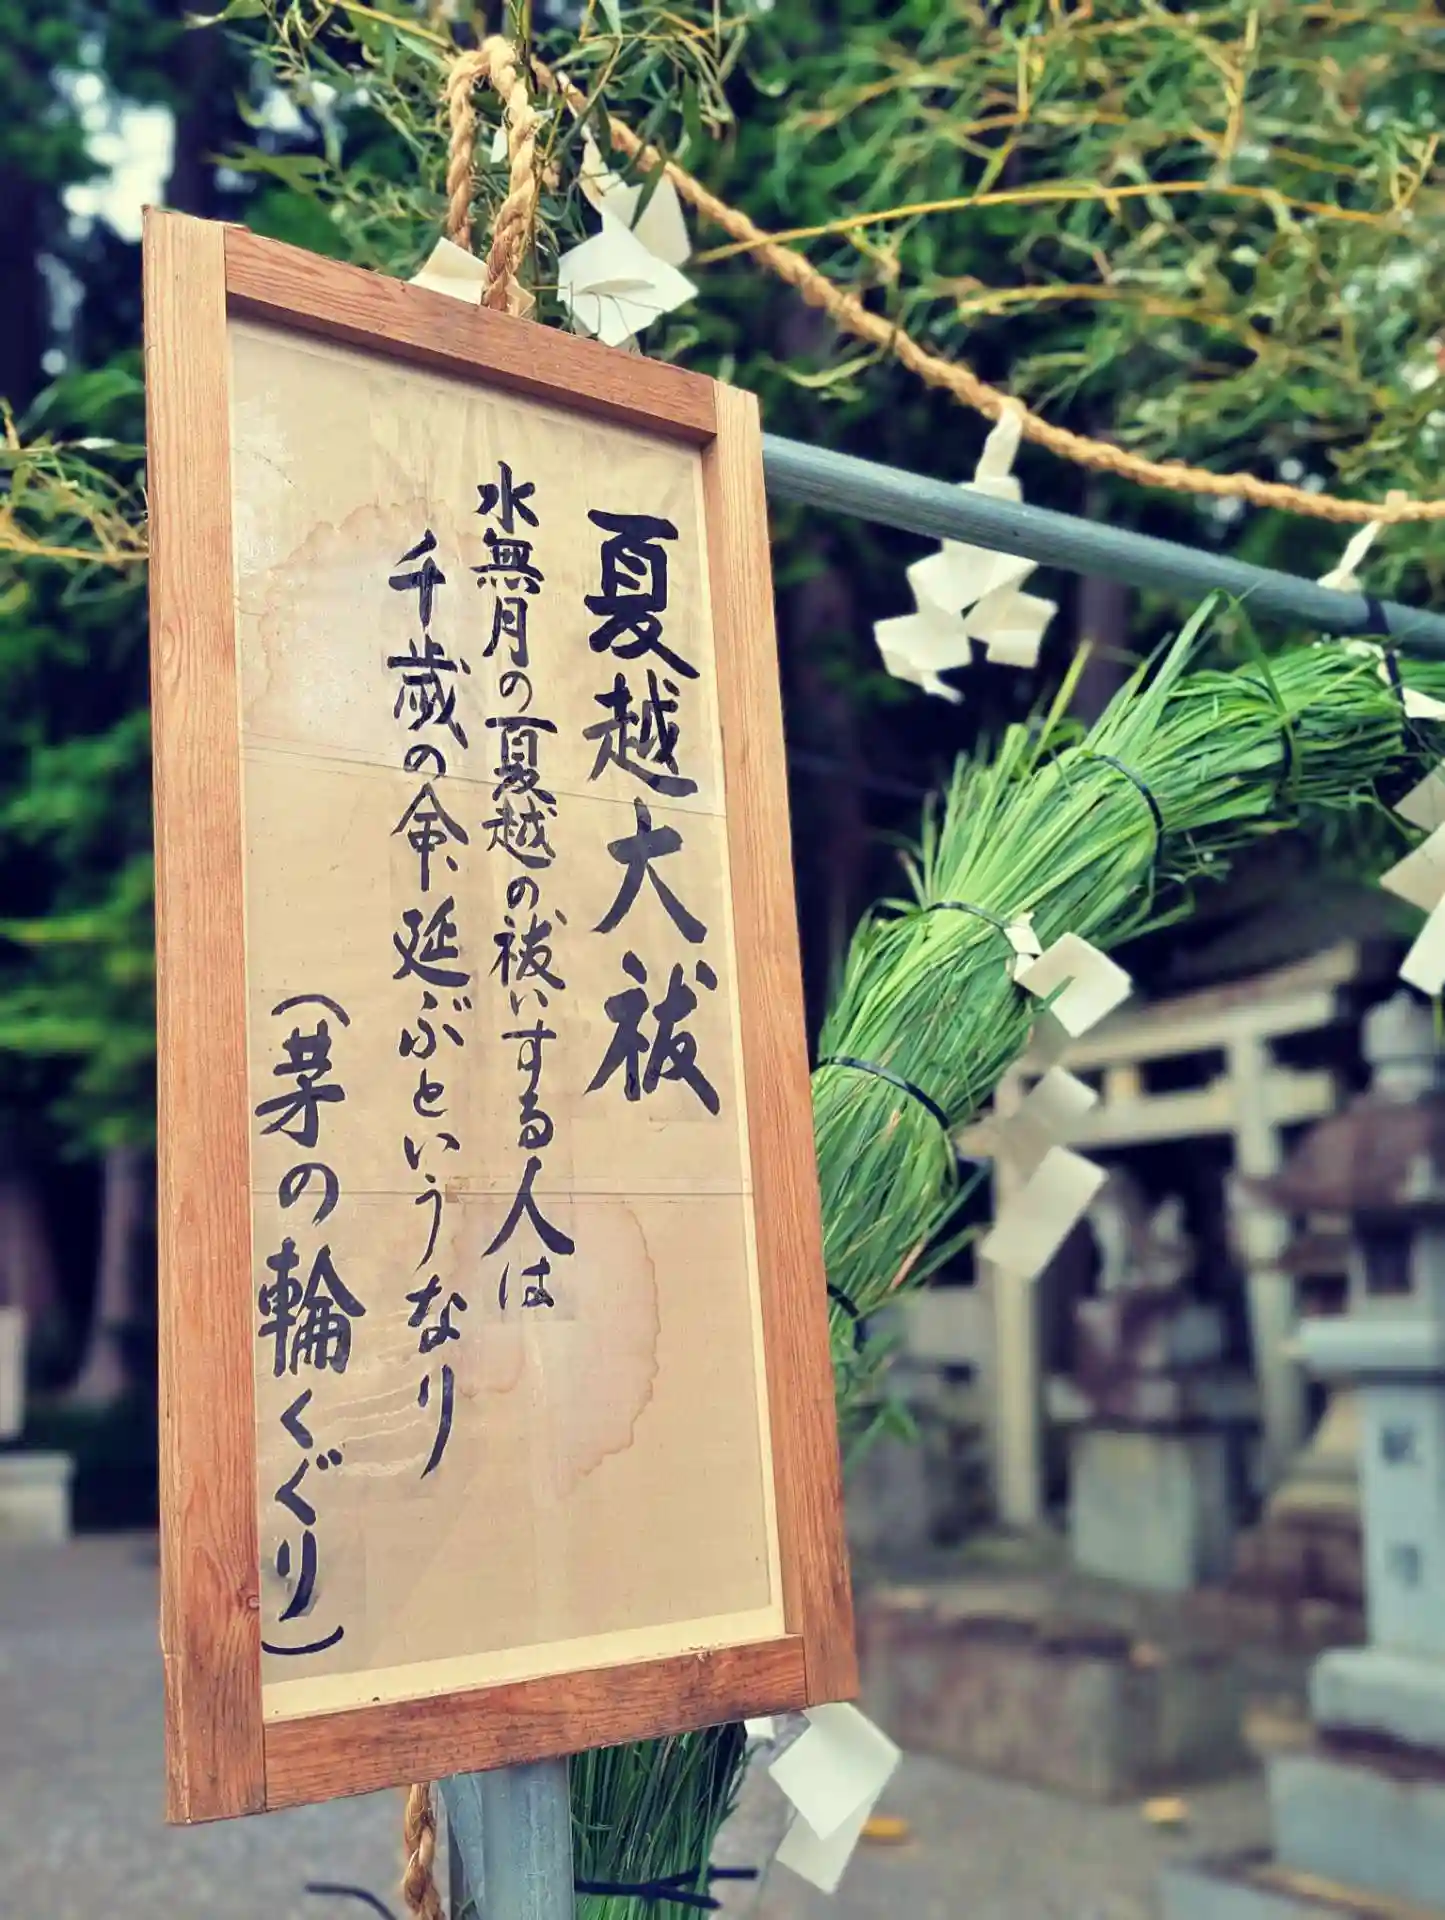 夏越大祓
水無月の夏越の祓いする人は
千歳の命、延ぶというなり
(茅の輪くぐり)